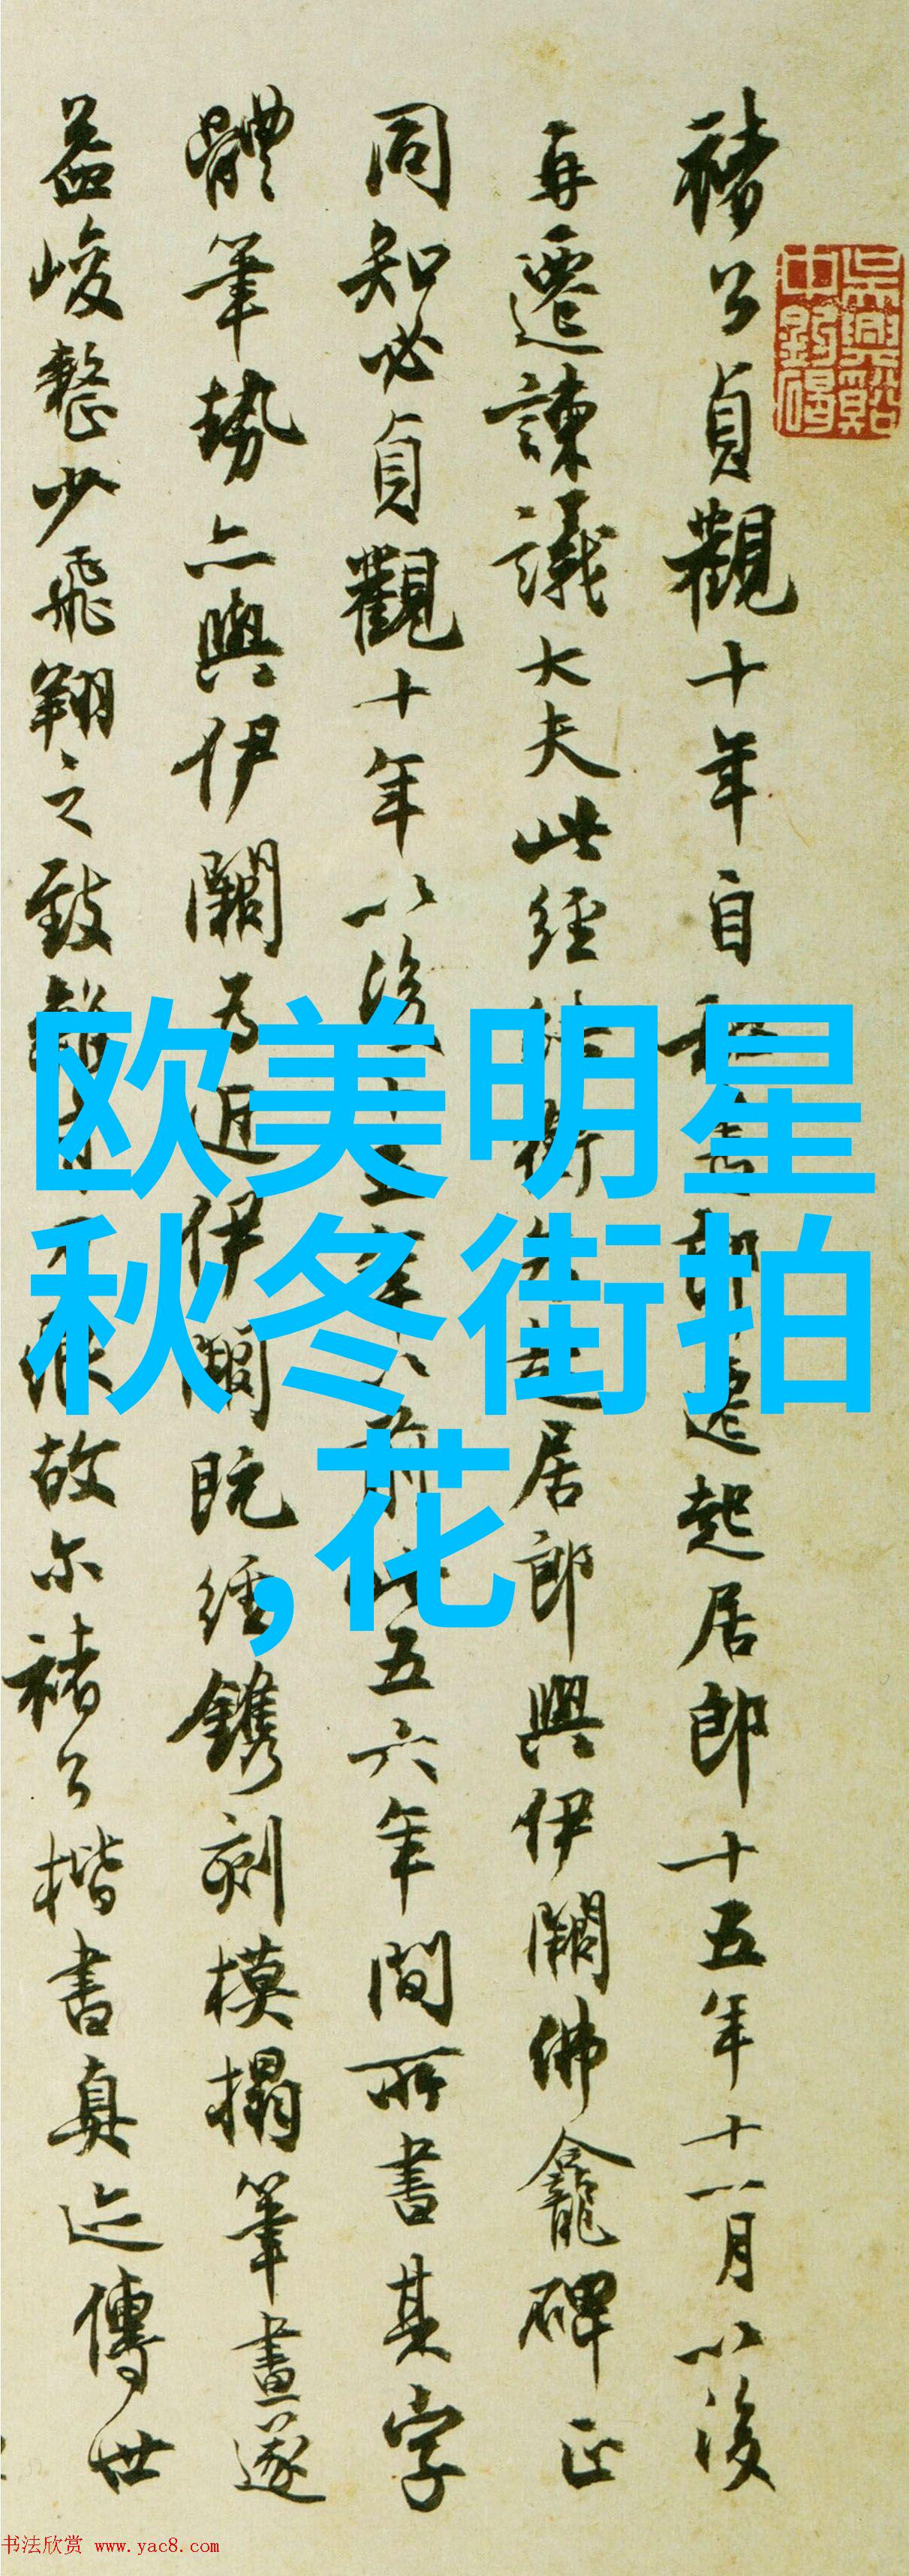 褚公貞觀十年自秘書郎遷起居郎十五年十一月以後
再遷諫議大夫此經結銜為起居郎與伊闕佛龕碑正
同知必貞觀十年以後十五年以前此五六年間所書其字
體筆勢亦與伊闕為近伊闕既經鐫刻模搨筆畫遂
益峻整少飛翔之致
故尔褚公楷書真迹傳世
欧美明星
秋冬街拍
,花
书法欣赏 www.yac8.com